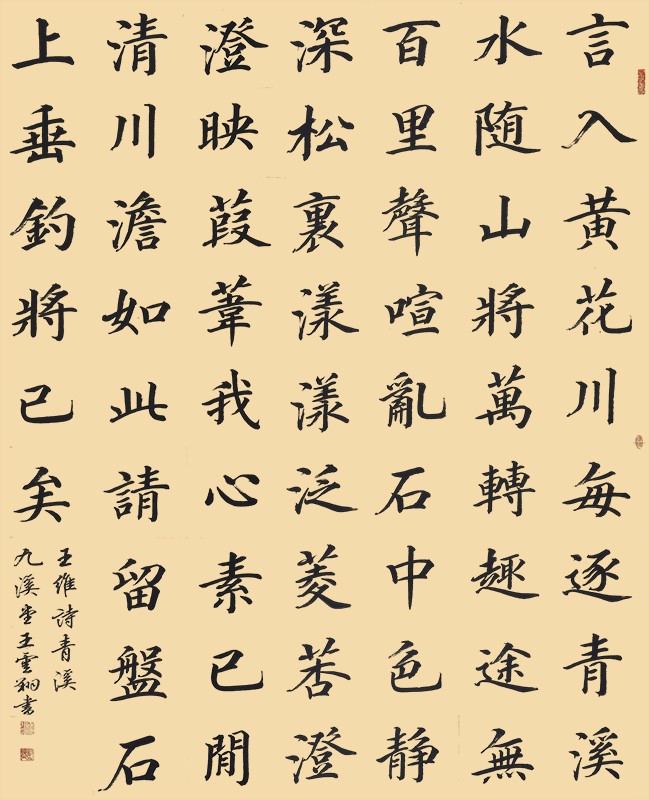 言入黃花川每逐青溪
水随山將萬轉趣途無
百里聲喧亂石中色静
深松裏漾漾泛菱莕澄
澄映葭葦我心素已閒
清川澹如此請留盤石
上垂釣將已矣
王維詩青溪
九溪堂王雲翔書